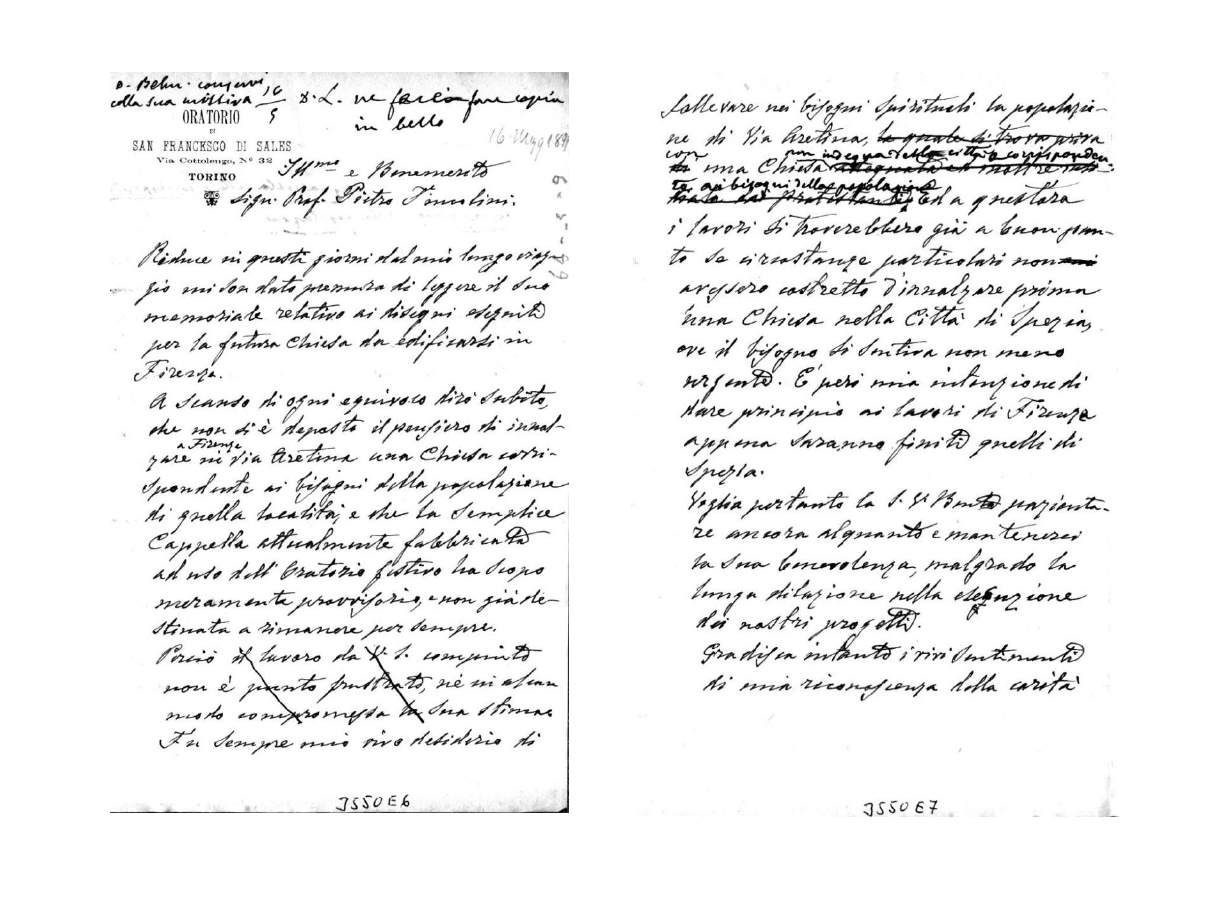 D. Belm. conservi 16
colla sua missiva 5
D. L. ne faccio fare copia
in bello
ORATORIO
DI
SAN FRANCESCO DI SALES
Via Cottolengo, N° 32
TORINO
16-Magg 189
Ill.mo e Benemerito
Sign. Prof. Pietro
Reduce in questi giorni dal mio lungo viag-
gio mi son dato premura di leggere il suo
memoriale relativo ai disegni eseguiti
per la futura Chiesa da edificarsi in
Firenze.
A scanso di ogni equivoco dirò subito,
che non si è deposto il pensiero di innal-
a Firenze
zare in Via Aretina una Chiesa corri-
spondente ai bisogni della popolazione
di quella località, e che la semplice
Cappella attualmente fabbricata
ad uso dell'Oratorio festivo ha scopo
meramente provvisorio, e non già de-
stinata a rimanere per sempre.
Perciò il lavoro da V. S. compiuto
non è punto frustrato, nè in alcun
modo compromessa la sua stima.
Fu sempre mio vivo desiderio di
J550E6
sollevare nei bisogni spirituali la popolazio-
ne di Via Aretina, la quale si trova priva
con non indegna della città e corrisponden-
una Chiesa
te ai bisogni della popolazione
Ed a quest'ora
i lavori si troverebbero già a buon pun-
to se circostanze particolari non mi
avessero costretto d'innalzare prima
una Chiesa nella Città di Spezia,
ove il bisogno si sentiva non meno
urgente. È però mia intenzione di
dare principio ai lavori di Firenze
appena saranno finiti quelli di
Spezia.
Voglia pertanto la S. V. Benta pazienta-
re ancora alquanto e mantenerci
la sua benevolenza, malgrado la
lunga dilazione nella esecuzione
dei nostri progetti.
Gradisca intanto i vivi sentimenti
di mia riconoscenza della carità
J550E7